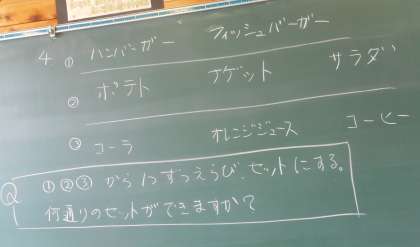 4 ① ハンバーガー フィッシュバーガー
② ポテト ナゲット サラダ
③ コーラ オレンジジュース コーヒー
Q ①②③から1つずつえらび、セットにする。
何通りのセットができますか?